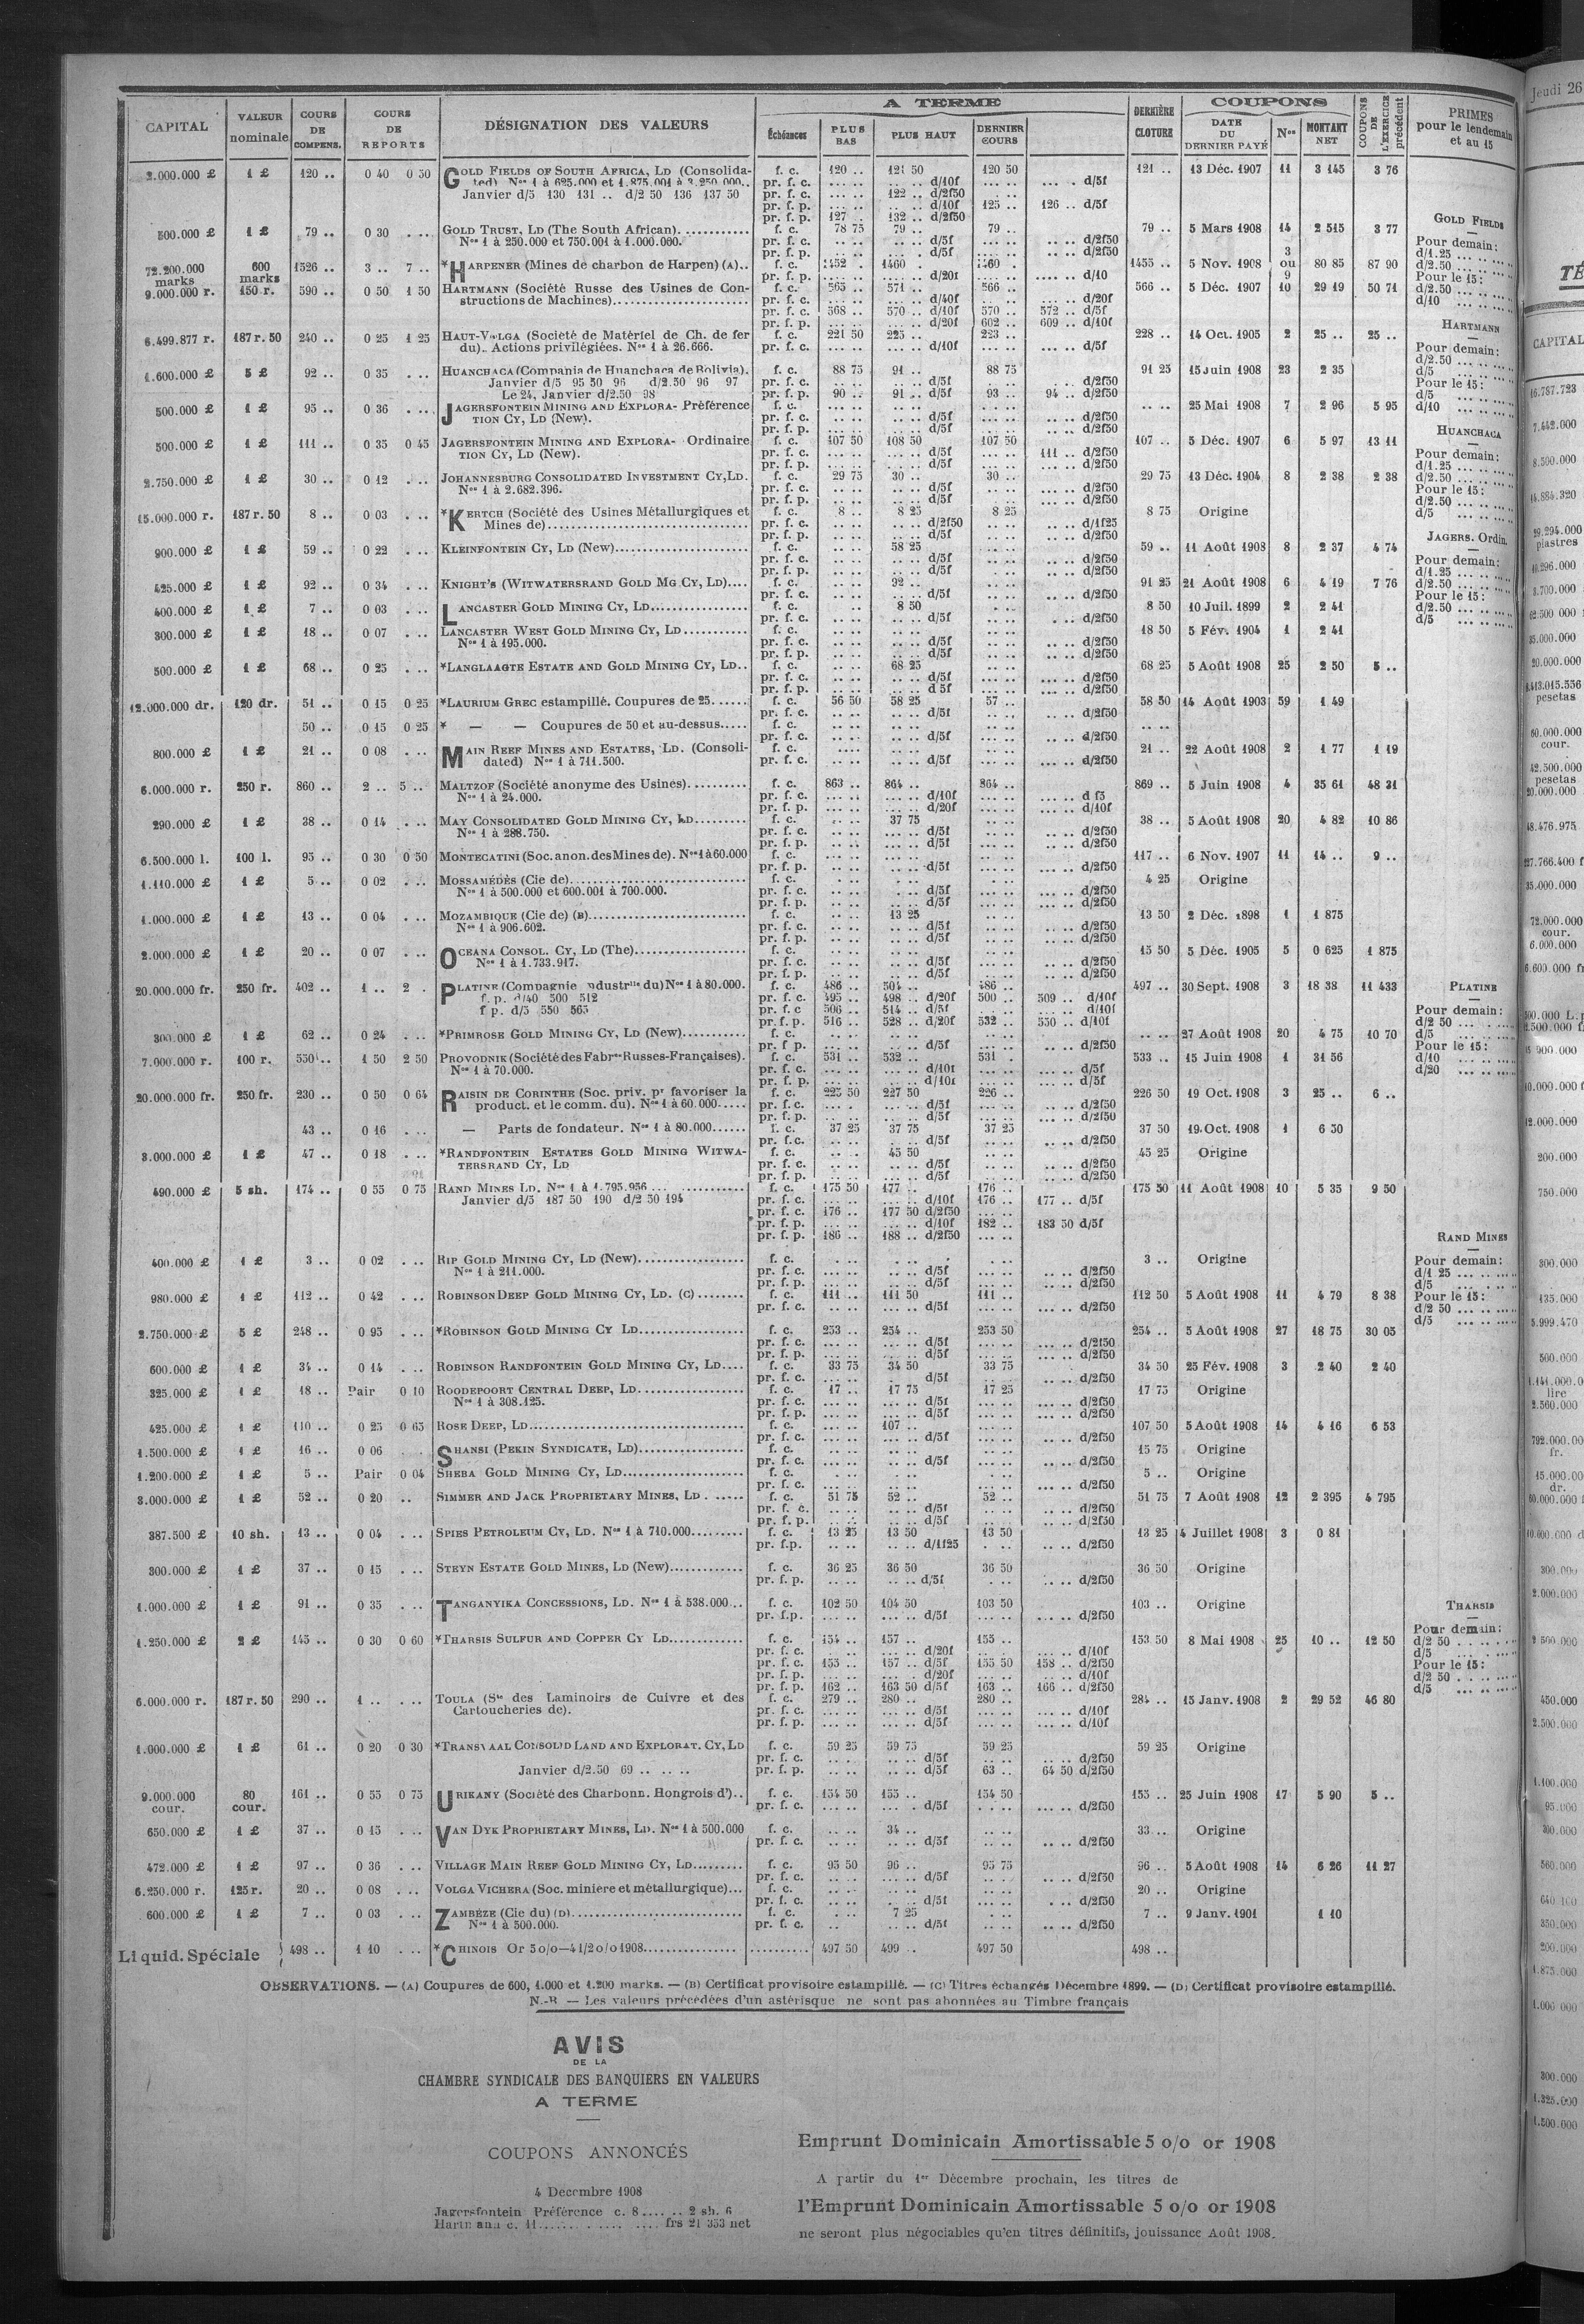 CAPITAL | VALEUR nominale | COURS DE COMPENS. | COURS DE REPORTS | DÉSIGNATION DES VALEURS | A TERME | DERNIÈRE CLOTURE | COUPONS | COUPONS DE L'EXERCICE précédent | PRIMES pour le lendemain et au 15
Échéances | PLUS BAS | PLUS HAUT | DERNIER COURS | DATE DU DERNIER PAYÉ | Nos | MONTANT NET
2.000.000 £ 1 £ 120 .. 0 40 0 50 GOLD FIELDS OF SOUTH AFRICA, LD (Consolida- f. c. 120 .. 121 50 120 50 121 .. 13 Déc. 1907 11 3 145 3 76
ted) Nos 1 à 625.000 et 1.875.001 à 3.250.000.. pr. f. c. d/10f d/5f
Janvier d/5 130 131 .. d/2 50 136 137 50 pr. f. c. 122 .. d/2f50
pr. f. p. d/10f 125 .. 126 .. d/5f
pr. f. p. 127 . 132 .. d/2f50
500.000 £ 1 £ 79 .. 0 30 GOLD TRUST, LD (The South African) f. c. 78 75 79 .. 79 .. 79 .. 5 Mars 1908 14 2 515 3 77
Nos 1 à 250.000 et 750.001 à 1.000.000. pr. f. c. d/5f d/2f50
pr. f. p. d/5f d/2f50
72.200.000 marks 600 marks 1526 .. 3 .. 7 .. *HARPENER (Mines de charbon de Harpen) (A).. f. c. 1452 . 1460 . 1460 . 1455 .. 5 Nov. 1908 3 ou 9 80 85 87 90
pr. f. p. d/20f d/10
9.000.000 r. 150 r. 590 .. 0 50 1 50 HARTMANN (Société Russe des Usines de Con- f. c. 565 .. 571 .. 566 .. 566 .. 5 Déc. 1907 10 29 19 50 71
structions de Machines) pr. f. c. d/40f d/20f
pr. f. c. 568 .. 570 .. d/10f 570 .. 572 .. d/5f
pr. f. p. d/20f 602 .. 609 .. d/10f
6.499.877 r. 187 r. 50 240 .. 0 25 1 25 HAUT-VOLGA (Société de Matériel de Ch. de fer f. c. 221 50 225 .. 223 .. 228 .. 14 Oct. 1905 2 25 .. 25 ..
du).. Actions privilégiées. Nos 1 à 26.666. pr. f. c. d/10f d/5f
1.600.000 £ 5 £ 92 .. 0 35 HUANCHACA (Compania de Huanchaca de Bolivia). f. c. 88 75 91 .. 88 75 91 25 15 Juin 1908 23 2 35
Janvier d/5 95 50 96 d/2.50 96 97 pr. f. c. d/5f d/2f50
Le 24, Janvier d/2.50 98 pr. f. p. 90 .. 91 .. d/5f 93 .. 94 .. d/2f50
500.000 £ 1 £ 95 .. 0 36 JAGERSFONTEIN MINING AND EXPLORA- Préférence f. c. 25 Mai 1908 7 2 96 5 95
TION CY, LD (New). pr. f. c. d/5f d/2f50
pr. f. p. d/5f d/2f50
500.000 £ 1 £ 111 .. 0 35 0 45 JAGERSFONTEIN MINING AND EXPLORA- Ordinaire f. c. 107 50 108 50 107 50 107 .. 5 Déc. 1907 6 5 97 13 11
TION CY, LD (New). pr. f. c. d/5f 111 .. d/2f50
pr. f. p. d/5f d/2f50
2.750.000 £ 1 £ 30 .. 0 12 JOHANNESBURG CONSOLIDATED INVESTMENT CY, LD. f. c. 29 75 30 .. 30 .. 29 75 13 Déc. 1904 8 2 38 2 38
Nos 1 à 2.682.396. pr. f. c. d/5f d/2f50
pr. f. p. d/5f d/2f50
15.000.000 r. 187 r. 50 8 .. 0 03 *KERTCH (Société des Usines Métallurgiques et f. c. 8 .. 8 25 8 25 8 75 Origine
Mines de) pr. f. c. d/2f50 d/1f25
pr. f. p. d/5f d/2f50
900.000 £ 1 £ 59 .. 0 22 KLEINFONTEIN CY, LD (New) f. c. 58 25 59 .. 11 Août 1908 8 2 37 4 74
pr. f. c. d/5f d/2f50
pr. f. p. d/5f d/2f50
425.000 £ 1 £ 92 .. 0 34 KNIGHT'S (WITWATERSRAND GOLD MG CY, LD).... f. c. 92 .. 91 25 21 Août 1908 6 4 19 7 76
pr. f. c. d/5f d/2f50
400.000 £ 1 £ 7 .. 0 03 LANCASTER GOLD MINING CY, LD f. c. 8 50 8 50 10 Juil. 1899 2 2 41
pr. f. c. d/5f d/2f50
300.000 £ 1 £ 18 .. 0 07 LANCASTER WEST GOLD MINING CY, LD f. c. 18 50 5 Fév. 1904 1 2 41
Nos 1 à 195.000. pr. f. c. d/5f d/2f50
pr. f. p. d/5f d/2f50
500.000 £ 1 £ 68 .. 0 25 *LANGLAAGTE ESTATE AND GOLD MINING CY, LD.. f. c. 68 25 68 25 5 Août 1908 25 2 50 5 ..
pr. f. c. d/5f d/2f50
pr. f. p. d 5f d/2f50
12.000.000 dr. 120 dr. 51 .. 0 15 0 25 *LAURIUM GREC estampillé. Coupures de 25 f. c. 56 50 58 25 57 .. 58 50 14 Août 1903 59 1 49
pr. f. c. d/5f d/2f50
50 .. 0 15 0 25 * — — Coupures de 50 et au-dessus f. c.
pr. f. c. d/5f d/2f50
800.000 £ 1 £ 21 .. 0 08 MAIN REEF MINES AND ESTATES, LD. (Consoli- f. c. 21 .. 22 Août 1908 2 1 77 1 19
dated) Nos 1 à 711.500. pr. f. c. d/5f d/2f50
6.000.000 r. 250 r. 860 .. 2 .. 5 .. MALTZOF (Société anonyme des Usines) f. c. 863 .. 864 .. 864 .. 869 .. 5 Juin 1908 4 35 61 48 31
Nos 1 à 24.000. pr. f. c. d/10f d f5
pr. f. p. d/20f d/10f
290.000 £ 1 £ 38 .. 0 14 MAY CONSOLIDATED GOLD MINING CY, LD f. c. 37 75 38 .. 5 Août 1908 20 4 82 10 86
Nos 1 à 288.750. pr. f. c. d/5f d/2f50
pr. f. p. d/5f d/2f50
6.500.000 l. 100 l. 95 .. 0 30 0 50 MONTECATINI (Soc. anon. des Mines de). Nos 1 à 60.000 f. c. 117 .. 6 Nov. 1907 11 14 .. 9 ..
pr. f. p. d/5f d/2f50
1.110.000 £ 1 £ 5 .. 0 02 MOSSAMÉDÈS (Cie de) f. c. 4 25 Origine
Nos 1 à 500.000 et 600.001 à 700.000. pr. f. c. d/5f d/2f50
pr. f. p. d/5f d/2f50
1.000.000 £ 1 £ 13 .. 0 04 MOZAMBIQUE (Cie de) (B) f. c. 13 25 13 50 2 Déc. 1898 1 1 875
Nos 1 à 906.602. pr. f. c. d/5f d/2f50
pr. f. p. d/5f d/2f50
2.000.000 £ 1 £ 20 .. 0 07 OCEANA CONSOL. CY, LD (The) f. c. 15 50 5 Déc. 1905 5 0 625 1 875
Nos 1 à 1.733.917. pr. f. c. d/5f d/2f50
pr. f. p. d/5f d/2f50
20.000.000 fr. 250 fr. 402 .. 1 .. 2 . PLATINE (Compagnie ndustrlle du) Nos 1 à 80.000. f. c. 486 .. 504 .. 486 .. 497 .. 30 Sept. 1908 3 18 38 11 433
f. p. d/40 500 512 pr. f. c. 495 .. 498 .. d/20f 500 .. 509 .. d/10f
f p. d/5 550 565 pr. f. c 506 .. 514 .. d/5f d/10f
pr. f. p. 516 .. 528 .. d/20f 532 .. 550 .. d/10f
300.000 £ 1 £ 62 .. 0 24 *PRIMROSE GOLD MINING CY, LD (New) f. c. 27 Août 1908 20 4 75 10 70
pr. f p. d/5f d/2f50
7.000.000 r. 100 r. 550 .. 1 50 2 50 PROVODNIK (Société des Fabres Russes-Françaises). f. c. 531 .. 532 .. 531 . 533 .. 15 Juin 1908 1 31 56
Nos 1 à 70.000. pr. f. c. d/10f d/5f
pr. f. p. d/10f d/5f
20.000.000 fr. 250 fr. 230 .. 0 50 0 64 RAISIN DE CORINTHE (Soc. priv. pr favoriser la f. c. 225 50 227 50 226 .. 226 50 19 Oct. 1908 3 25 .. 6 ..
product. et le comm. du). Nos 1 à 60.000 pr. f. c. d/5f d/2f50
pr. f. p. d/5f d/2f50
43 .. 0 16 — Parts de fondateur. Nos 1 à 80.000 f. c. 37 25 37 75 37 25 37 50 19 Oct. 1908 1 6 50
pr. f. c. d/5f d/2f50
3.000.000 £ 1 £ 47 .. 0 18 *RANDFONTEIN ESTATES GOLD MINING WITWA- f. c. 45 50 45 25 Origine
TERSRAND CY, LD pr. f. c. d/5f d/2f50
pr. f. p. d/5f d/2f50
490.000 £ 5 sh. 174 .. 0 55 0 75 RAND MINES LD. Nos 1 à 1.795.956 f. c. 175 50 177 .. 176 .. 175 50 11 Août 1908 10 5 35 9 50
Janvier d/5 187 50 190 d/2 50 194 pr. f. c. d/10f 176 .. 177 .. d/5f
pr. f. c. 176 .. 177 50 d/2f50
pr. f. p. d/10f 182 .. 183 50 d/5f
pr. f. p. 186 .. 188 .. d/2f50
400.000 £ 1 £ 3 .. 0 02 RIP GOLD MINING CY, LD (New) f. c. 3 .. Origine
Nos 1 à 211.000. pr. f. c. d/5f d/2f50
pr. f. p. d/5f d/2f50
980.000 £ 1 £ 112 .. 0 42 ROBINSON DEEP GOLD MINING CY, LD. (C) f. c. 111 .. 111 50 111 .. 112 50 5 Août 1908 11 4 79 8 38
pr. f. c. d/5f d/2f50
2.750.000 £ 5 £ 248 .. 0 95 *ROBINSON GOLD MINING CY LD f. c. 253 .. 254 .. 253 50 254 .. 5 Août 1908 27 18 75 30 05
pr. f. c. d/5f d/2f50
pr. f. p. d/5f d/2f50
600.000 £ 1 £ 34 .. 0 14 ROBINSON RANDFONTEIN GOLD MINING CY, LD.... f. c. 33 75 34 50 33 75 34 50 25 Fév. 1908 3 2 40 2 40
pr. f. c. d/5f d/2f50
325.000 £ 1 £ 18 .. Pair 0 10 ROODEPOORT CENTRAL DEEP, LD f. c. 17 .. 17 75 17 25 17 75 Origine
Nos 1 à 308.125. pr. f. c. d/5f d/2f50
pr. f. p. d/5f d/2f50
425.000 £ 1 £ 110 .. 0 25 0 65 ROSE DEEP, LD f. c. 107 .. 107 50 5 Août 1908 14 4 16 6 53
pr. f. c. d/5f d/2f50
1.500.000 £ 1 £ 16 .. 0 06 SHANSI (PEKIN SYNDICATE, LD) f. c. 15 75 Origine
pr. f. c. d/5f d/2f50
1.200.000 £ 1 £ 5 .. Pair 0 04 SHEBA GOLD MINING CY, LD f. c. 5 .. Origine
pr. f. c. d/2f50
3.000.000 £ 1 £ 52 .. 0 20 SIMMER AND JACK PROPRIETARY MINES, LD f. c. 51 75 52 .. 52 .. 51 75 7 Août 1908 12 2 395 4 795
pr. f. c. d/5f d/2f50
pr. f. p. d/5f d/2f50
387.500 £ 10 sh. 13 .. 0 04 SPIES PETROLEUM CY, LD. Nos 1 à 710.000 f. c. 13 25 13 50 13 50 13 25 4 Juillet 1908 3 0 81
pr. f.p. d/1f25 d/2f50
300.000 £ 1 £ 37 .. 0 15 STEYN ESTATE GOLD MINES, LD (New) f. c. 36 25 36 50 36 50 36 50 Origine
pr. f. p. d/5f d/2f50
1.000.000 £ 1 £ 91 .. 0 35 TANGANYIKA CONCESSIONS, LD. Nos 1 à 538.000 f. c. 102 50 104 50 103 50 103 .. Origine
pr. f.p. d/5f d/2f50
1.250.000 £ 2 £ 145 .. 0 30 0 60 *THARSIS SULFUR AND COPPER CY LD f. c. 154 .. 157 .. 155 .. 153 50 8 Mai 1908 25 10 .. 12 50
pr. f. c. d/20f d/10f
pr. f. c. 155 .. 157 .. d/5f 155 50 158 .. d/2f50
pr. f. p. d/20f d/10f
pr. f. p. 162 .. 163 50 d/5f 163 .. 166 .. d/2f50
6.000.000 r. 187 r. 50 290 .. 1 .. TOULA (Sté des Laminoirs de Cuivre et des f. c. 279 .. 280 .. 280 .. 284 .. 15 Janv. 1908 2 29 52 46 80
Cartoucheries de). pr. f. c. d/5f d/10f
pr. f. p. d/5f d/10f
1.000.000 £ 1 £ 61 .. 0 20 0 30 *TRANSVAAL CONSOLID LAND AND EXPLORAT. CY, LD f. c. 59 25 59 75 59 25 59 25 Origine
pr. f. c. d/5f d/2f50
Janvier d/2.50 69 .. .. .. pr. f. p. d/5f 63 .. 64 50 d/2f50
9.000.000 cour. 80 cour. 161 .. 0 55 0 75 URIKANY (Société des Charbonn. Hongrois d').. f. c. 154 50 155 .. 154 50 155 .. 25 Juin 1908 17 5 90 5 ..
pr. f. c. d/5f d/2f50
650.000 £ 1 £ 37 .. 0 15 VAN DYK PROPRIETARY MINES, LD. Nos 1 à 500.000 f. c. 34 .. 33 .. Origine
pr. f. c. d/5f d/2f50
472.000 £ 1 £ 97 .. 0 36 VILLAGE MAIN REEF GOLD MINING CY, LD f. c. 95 50 96 .. 95 75 96 .. 5 Août 1908 14 6 26 11 27
pr. f. c. d/5f d/2f50
6.250.000 r. 125 r. 20 .. 0 08 VOLGA VICHERA (Soc. minière et métallurgique)... f. c. 20 .. Origine
pr. f. c. d/5f d/2f50
600.000 £ 1 £ 7 .. 0 03 ZAMBÈZE (Cie du) (D) f. c. 7 25 7 .. 9 Janv. 1901 1 10
Nos 1 à 500.000. pr. f. c. d/5f d/2f50
Liquid. Spéciale 498 .. 1 10 *CHINOIS Or 5 o/o—4 1/2 o/o 1908 497 50 499 .. 497 50 498 ..
GOLD FIELDS
Pour demain:
d/1.25
d/2.50
Pour le 15:
d/2.50
d/10
HARTMANN
Pour demain:
d/2.50
d/5
Pour le 15:
d/5
d/10
HUANCHACA
Pour demain:
d/1.25
d/2.50
Pour le 15:
d/2.50
d/5
JAGERS. Ordin.
Pour demain:
d/1.25
d/2.50
Pour le 15:
d/2.50
d/5
PLATINE
Pour demain:
d/2 50
d/5
Pour le 15:
d/10
d/20
RAND MINES
Pour demain:
d/1 25
d/5
Pour le 15:
d/2 50
d/5
THARSIS
Pour demain:
d/2 50
d/5
Pour le 15:
d/2 50
d/5
OBSERVATIONS. — (A) Coupures de 600, 1.000 et 1.200 marks. — (B) Certificat provisoire estampillé. — (C) Titres échangés Décembre 1899. — (D) Certificat provisoire estampillé.
N.-B — Les valeurs précédées d'un astérisque ne sont pas abonnées au Timbre français
AVIS
DE LA
CHAMBRE SYNDICALE DES BANQUIERS EN VALEURS
A TERME
COUPONS ANNONCÉS
4 Décembre 1908
Jagersfontein Préférence c. 8 .... .. 2 sh. 6
Hartmann c. 11 .... frs 21 353 net
Emprunt Dominicain Amortissable 5 o/o or 1908
A partir du 1er Décembre prochain, les titres de
l'Emprunt Dominicain Amortissable 5 o/o or 1908
ne seront plus négociables qu'en titres définitifs, jouissance Août 1908.
Jeudi 26
CAPITAL
16.787.723
7.442.000
8.500.000
14.884.320
29.294.000
piastres